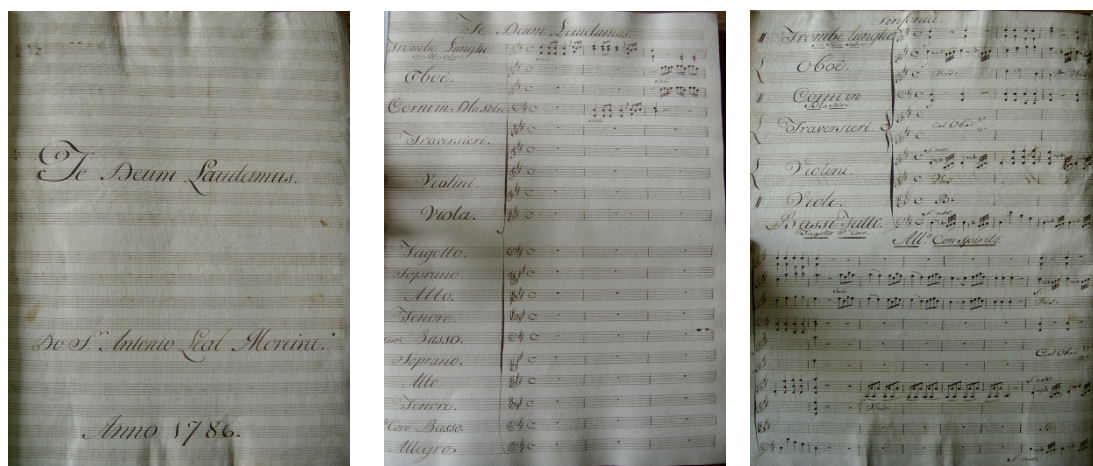 Te Deum Laudamus.
Do S.r Antonio Leal Moreira.
Anno 1786.
Te Deum Laudamus.
Trombe Lunghe
Solo
Oboè.
Solo
Corni in Dlasolre
Solo
Traversieri.
Violini.
Viola.
Fagotto.
Soprano
Alto.
Tenore.
Basso.
Soprano.
Alto.
Tenore.
Coro Basso.
Allegro
Sinfonia.
Trombe lunghe
Oboè.
Corni in
Traversieri.
Col Oboè
Violini.
Viole.
Bassi Tutti.
Fagotto
All.o Con spirito.
Solo
Col Oboè